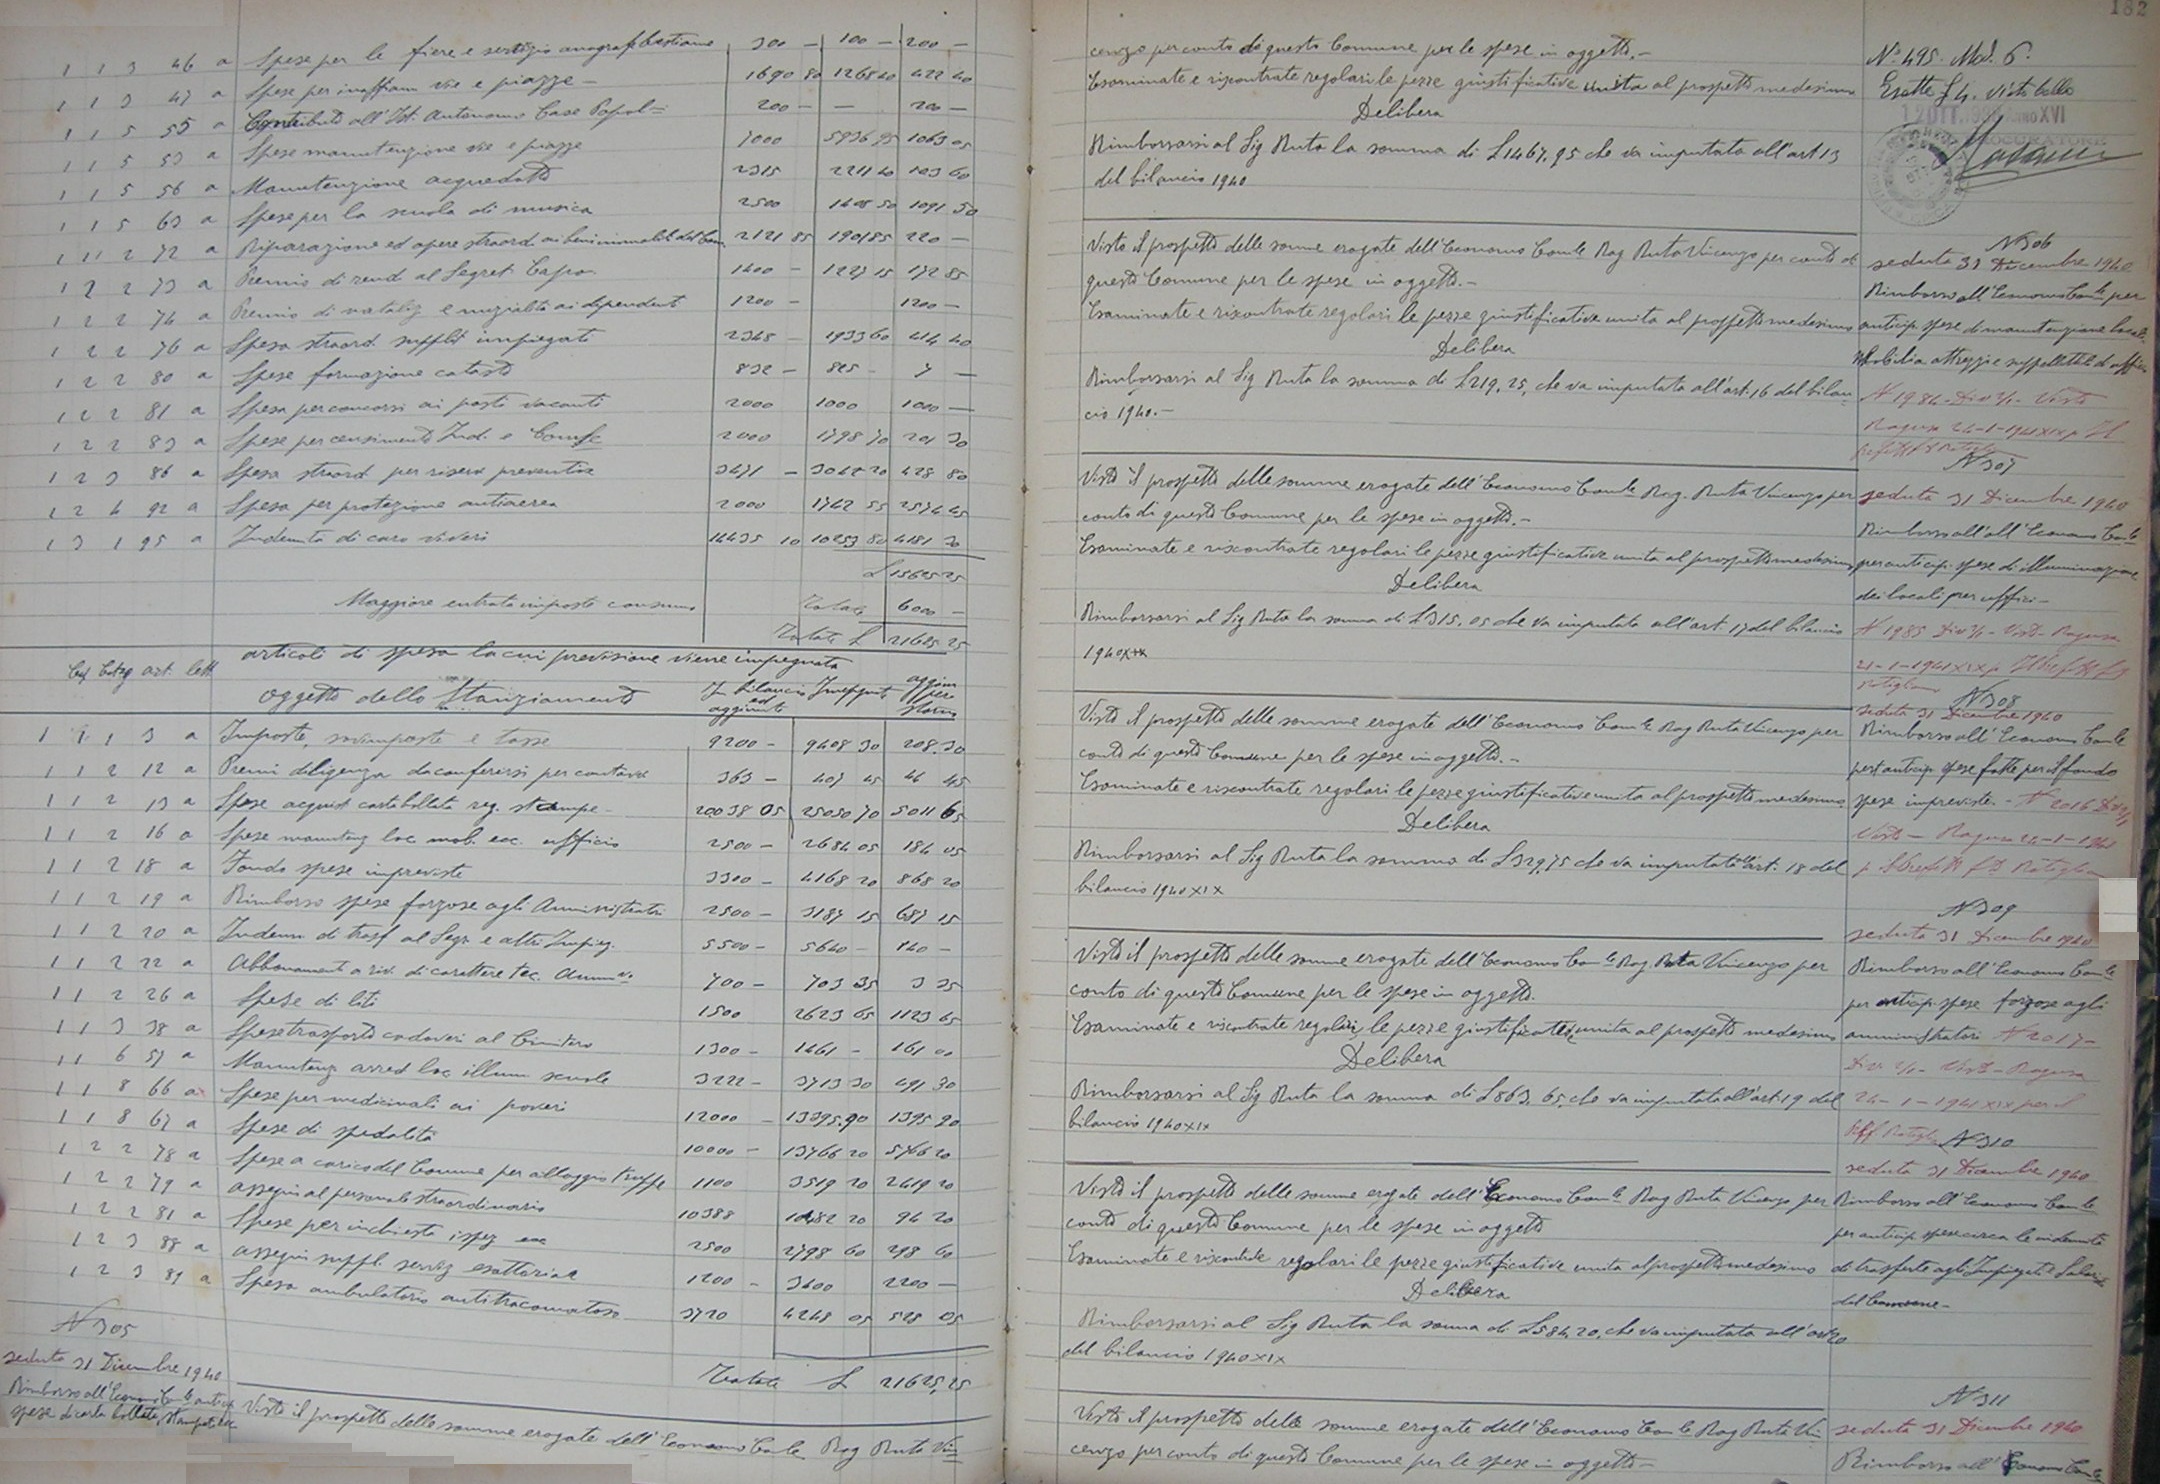 1 1 3 46 a Spese per le fiere e servizio anagraf bestiame 300 — 100 — 200 —
1 1 3 47 a Spese per innaffiam vie e piazze — 1690 80 1268 40 422 40
1 1 5 55 a Contributo all'Ist. Autonomo Case Popol= 200 — — 200 —
1 1 5 53 a Spese manutenzione vie e piazze 7000 5936 95 1063 05
1 1 5 56 a Manutenzione acquedotto 2315 2211 40 103 60
1 1 5 63 a Spese per la scuola di musica 2500 1408 50 1091 50
1 11 2 72 a Riparazione ed opere straord ai beni immobili del Com. 2121 85 1901 85 220 —
1 2 2 73 a Premio di rend al Segret Capo 1400 — 1227 15 172 85
1 2 2 74 a Premio di natalig e nuzialità ai dipendenti 1200 — 1200 —
1 2 2 76 a Spesa straord. suppliti impiegati 2348 — 1933 60 414 40
1 2 2 80 a Spese formazione catasto 832 — 825 — 7 —
1 2 2 81 a Spesa per concorsi ai posti vacanti 2000 1000 1000 —
1 2 2 83 a Spese per censimento Ind. e Comle 2000 1798 70 201 30
1 2 3 86 a Spesa straord per ricerca preventiva 3471 — 3042 20 428 80
1 2 4 92 a Spesa per protezione antiaerea 2000 1742 55 257 45
1 3 1 95 a Indennità di caro viveri 14435 10 10253 80 4181 30
£ 15625 25
Maggiore entrata imposte consumo Totale 6000 —
Totale £ 21625 25
articoli di spesa la cui previsione viene impegnata
Cap Categ art. lett. oggetto dello Stanziamento In bilancio ed aggiunte Impegnate aggiun per storno
1 1 1 3 a Imposte, sovrimposte e tasse 9200 — 9408 30 208 30
1 1 2 12 a Premi diligenza da conferirsi per contratto 363 — 407 45 44 45
1 1 2 13 a Spese acquist carta bollata reg. stampe — 20038 05 25050 70 5011 65
1 1 2 16 a Spese manutenz loc mob. ecc. ufficio 2500 — 2684 05 184 05
1 1 2 18 a Fondo spese impreviste 3300 — 4168 20 868 20
1 1 2 19 a Rimborso spese forzose agli Amministrat 2500 — 3187 15 687 15
1 1 2 20 a Indenn di trasf al Segr e altri Impieg. 5500 — 5640 — 140 —
1 1 2 22 a Abbonamenti a riv. di carattere tec. Ammvo 700 — 703 35 3 35
1 1 2 26 a Spese di liti 1500 2623 65 1123 65
1 1 3 38 a Spese trasporto cadaveri al Cimitero 1300 — 1461 — 161 00
1 1 6 57 a Manutenz arred loc illum scuole 3222 — 3713 30 491 30
1 1 8 66 a Spese per medicinali ai poveri 12000 — 13395.90 1395 90
1 1 8 67 a Spese di spedalità 10000 — 13766 20 3766 20
1 2 2 78 a Spese a carico del Comune per alloggio truppe 1100 3519 20 2419 20
1 2 2 79 a assegni al personale straordinario 10388 10482 20 94 20
1 2 2 81 a Spese per inchieste ispez ecc 2500 2798 60 298 60
1 2 3 88 a assegni suppl. serviz esattoriale 1200 — 3400 2200 —
1 2 3 89 a Spesa ambulatorio antitracomatoso 3720 4248 05 528 05
Totale £ 21625,25
N 305
seduta 31 Dicembre 1940
Rimborso all'Economo Comle antic
spese di carta bollata, stampati ecc
Visto il prospetto delle somme erogate dell'Economo Comle Rag Ruta Vin=
cenzo per conto di questo Comune per le spese in oggetto. —
Esaminate e riscontrate regolari le pezze giustificative unita al prospetto medesimo
Delibera
Rimborsarsi al Sig Ruta la somma di £1467,95 che va imputata all'art 13
del bilancio 1940
182
N° 495. Mod. 6.
Esatte £ 4. visto bollo
PROCURATORE
N 306
seduta 31 Dicembre 1940
Rimborso all'Economo Comle per
anticip. spese di manutenzione locali
Mobilia attrezzi e suppellettili d'ufficio
N 1984 - Div 2/1 - Visto
Ragusa 24-1-1941 XIX p Il
Visto il prospetto delle somme erogate dell'Economo Comle Rag Ruta Vincenzo per conto di
questo Comune per le spese in oggetto. —
Esaminate e riscontrate regolari le pezze giustificative unita al prospetto medesimo
Delibera
Rimborsarsi al Sig Ruta la somma di £219,25, che va imputata all'art. 16 del bilan
cio 1940. —
N 307
seduta 31 Dicembre 1940
Rimborso all'all'Economo Comle
per anticip. spese di illuminazione
dei locali per uffici —
N 1985 Div 2/1 - Visto - Ragusa
Visto il prospetto delle somme erogate dell'Economo Comle Rag. Ruta Vincenzo per
conto di questo Comune per le spese in oggetto. —
Esaminate e riscontrate regolari le pezze giustificative unita al prospetto medesimo
Delibera
Rimborsarsi al Sig Ruta la somma di £315,05 che va imputata all'art. 17 del bilancio
1940 XIX
N 308
seduta 31 Dicembre 1940
Rimborso all'Economo Comle
per anticip. spese fatte per il fondo
spese impreviste. — N 2016 Div 2/1
Visto — Ragusa 24-1-1941
Visto il prospetto delle somme erogate dell'Economo Comle Rag Ruta Vincenzo per
conto di questo Comune per le spese in oggetto. —
Esaminate e riscontrate regolari le pezze giustificative unita al prospetto medesimo
Delibera
Rimborsarsi al Sig Ruta la somma di £329,75 che va imputata all'art. 18 del
bilancio 1940 XIX
N 309
seduta 31 Dicembre 1940
Rimborso all'Economo Comle
per anticip. spese forzose agli
amministratori N 2017 —
Div 2/1 - Visto - Ragusa
24-1-1941 XIX per il
Visto il prospetto delle somme erogate dell'Economo Comle Rag. Ruta Vincenzo per
conto di questo Comune per le spese in oggetto.
Esaminate e riscontrate regolari, le pezze giustificative unita al prospetto medesimo
Delibera
Rimborsarsi al Sig Ruta la somma di £863,65, che va imputata all'art 19 del
bilancio 1940 XIX
N 310
seduta 31 Dicembre 1940
Rimborso all'Economo Comle
per anticip spese circa le indennità
di trasferte agli Impiegati e Salar.
del Comune —
Visto il prospetto delle somme erogate dell'Economo Comle Rag Ruta Vincenzo per
conto di questo Comune per le spese in oggetto
Esaminate e riscontrate regolari le pezze giustificative unita al prospetto medesimo
Delibera
Rimborsarsi al Sig Ruta la somma di £584,20, che va imputata all'art 20
del bilancio 1940 XIX
N 311
seduta 31 Dicembre 1940
Rimborso all'Economo Comle
Visto il prospetto delle somme erogate dell'Economo Comle Rag Ruta Vin
cenzo per conto di questo Comune per le spese in oggetto —